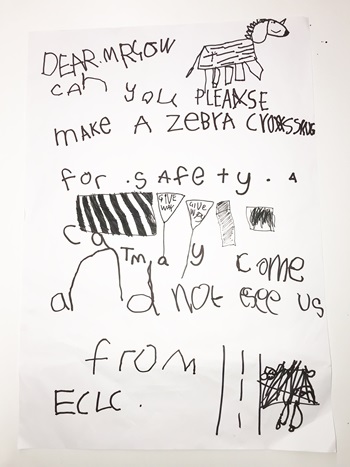 DEAR.MRGOW
can you PLEASE
make A zebra CROSSSING
for .sAfety. A
GIVE WAY GIVE WAY
CaTmay come
and not see us
from
ECLC.